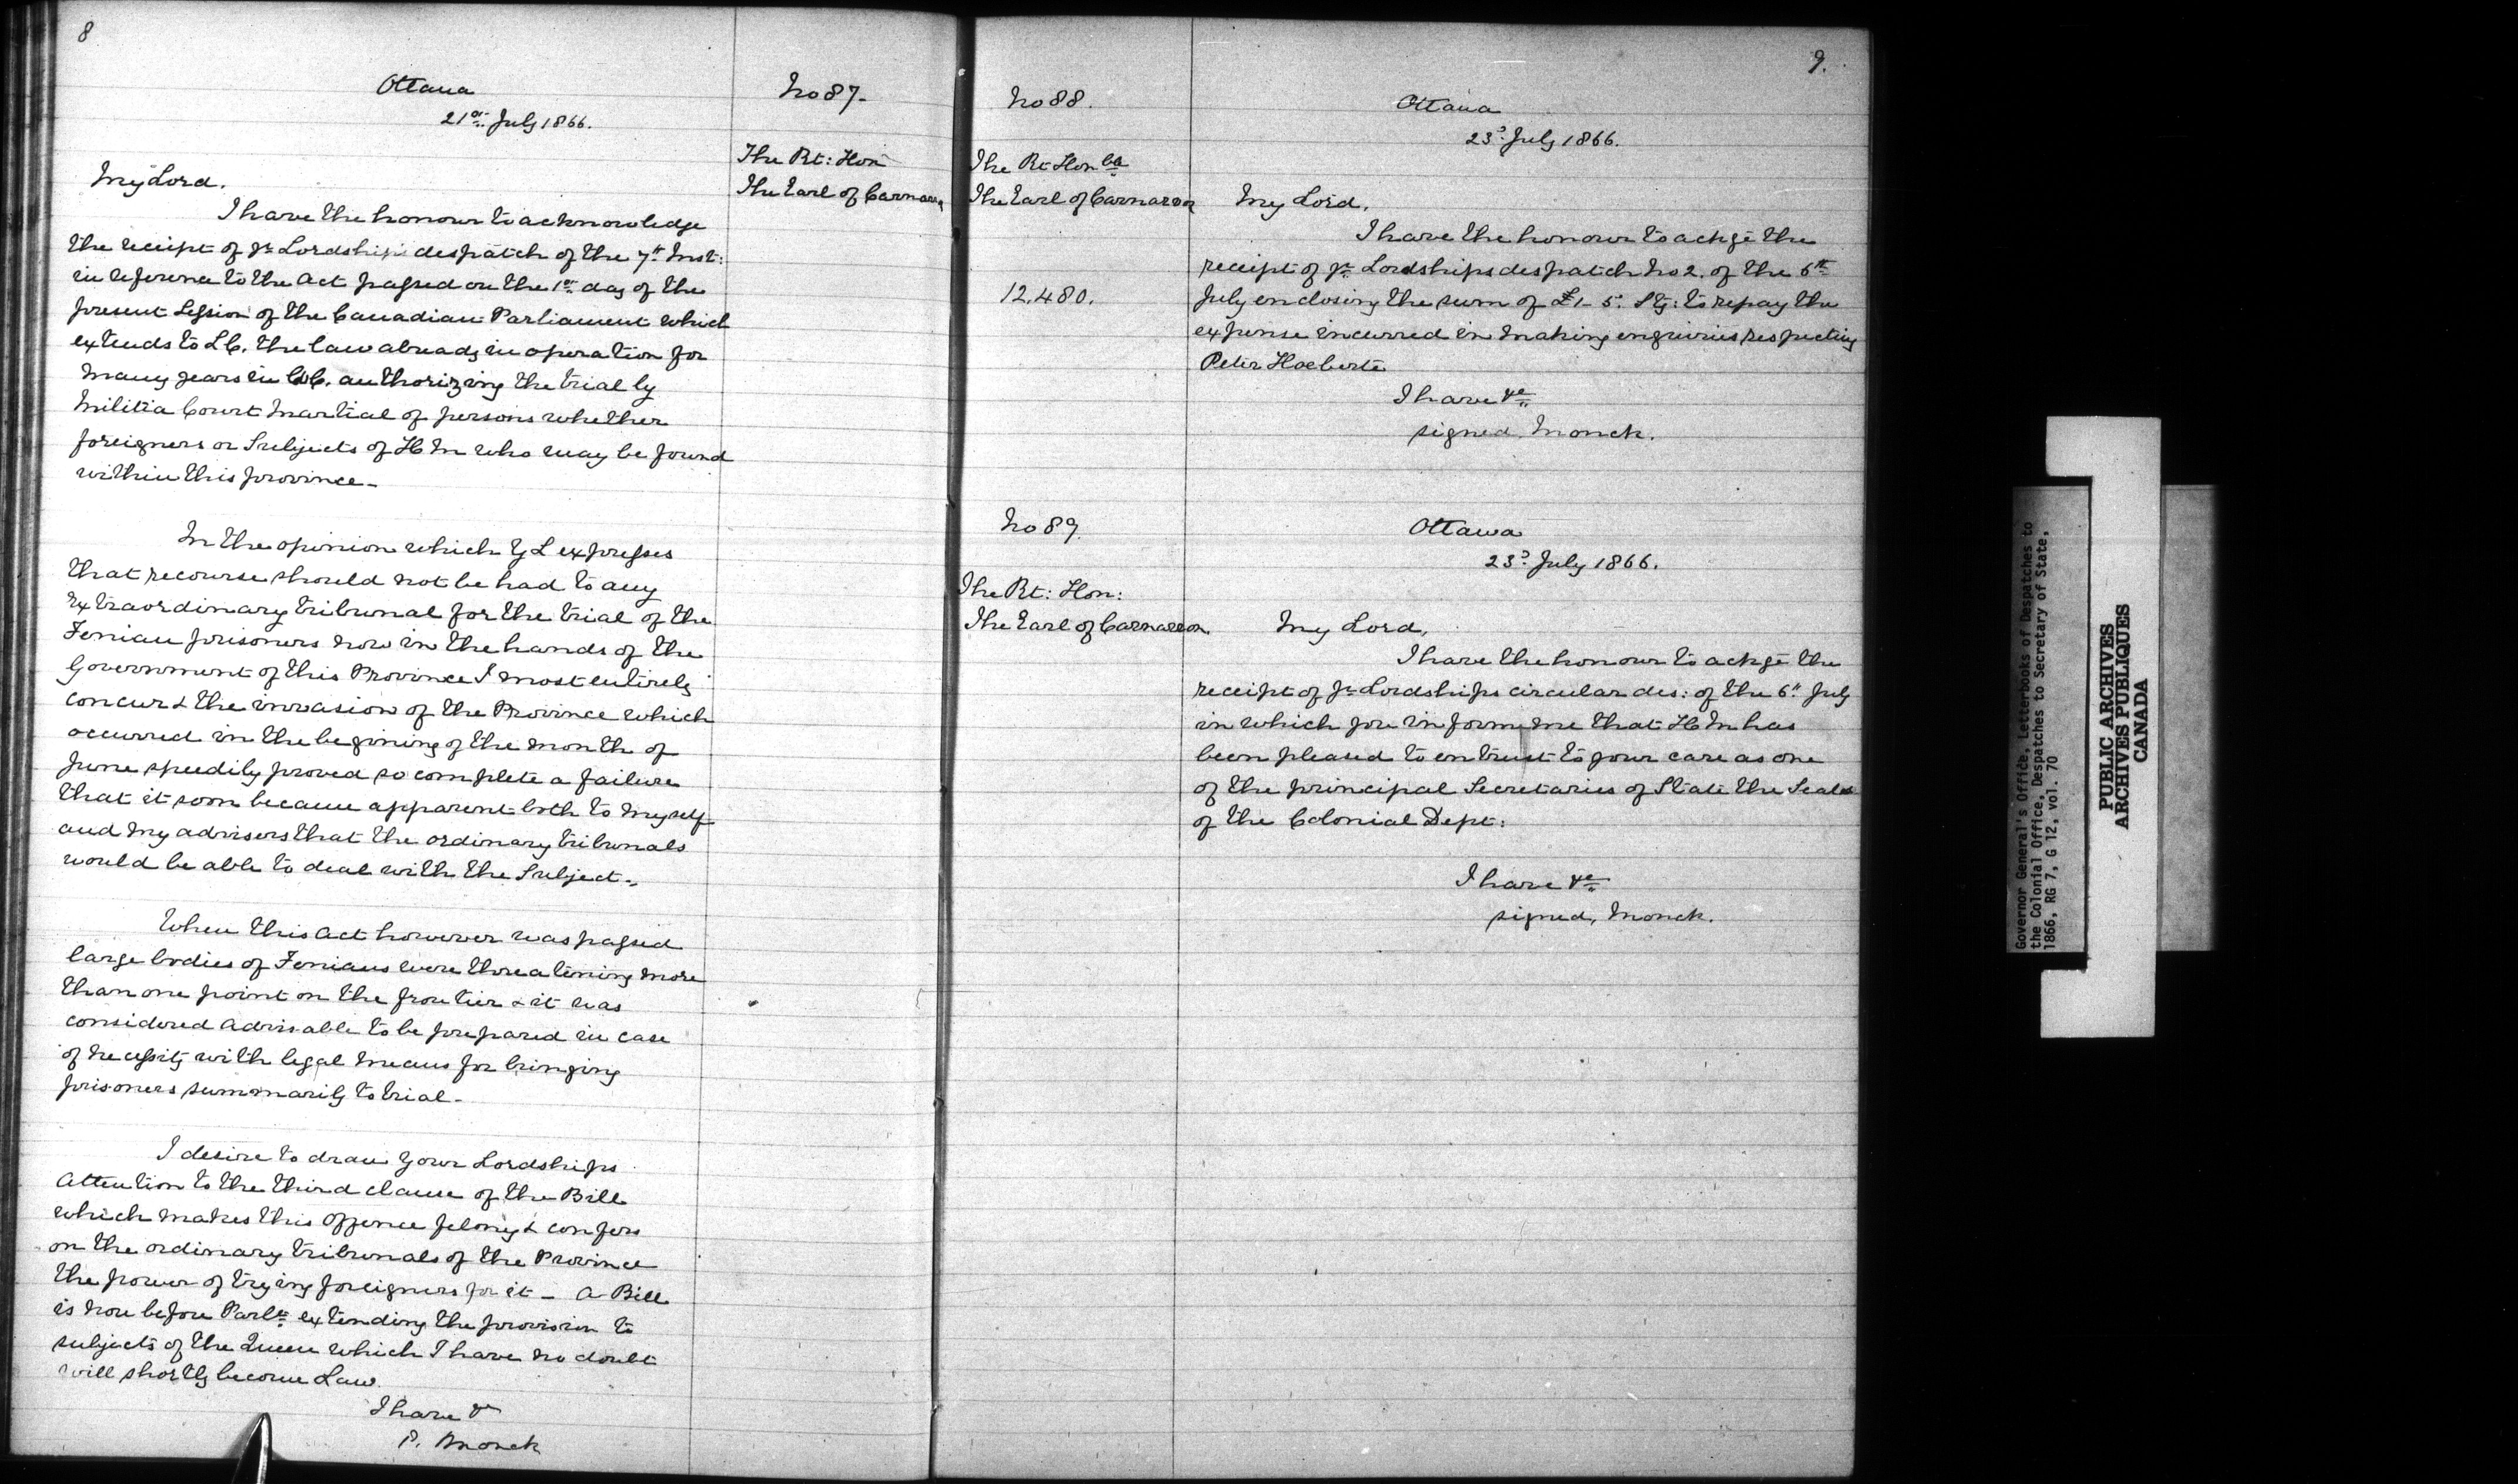 8
Ottawa
21st July 1866.
No 87.
The Rt: Hon
The Earl of Carnarvon
My Lord.
I have the honour to acknowledge
the receipt of yr Lordships despatch of the 7th Inst:
in reference to the Act passed on the 1st day of the
present Session of the Canadian Parliament which
extends to L.C. the law already in operation for
many years in U.C. authorizing the trial by
Militia Court Martial of persons whether
foreigners or Subjects of H M who may be found
within this province -
In the opinion which Y L expresses
that recourse should not be had to any
extraordinary tribunal for the trial of the
Fenian prisoners now in the hands of the
Government of this Province I most entirely
concur & the invasion of the Province which
occurred in the begining of the month of
June speedily proved so complete a failure
that it soon became apparent both to myself
and my advisers that the ordinary tribunals
would be able to deal with the Subject -
When this Act however was passed
large bodies of Fenians were threatening more
than one point on the frontier & it was
considered advisable to be prepared in case
of necessity with legal means for bringing
prisoners summarily to trial -
I desire to draw your Lordships
attention to the third clause of the Bill
which makes this offence felony & confers
on the ordinary tribunals of the Province
the power of trying foreigners for it - A Bill
is now before Parlt extending the provision to
subjects of the Queen which I have no doubt
will shortly become Law
I have &c
Monck
9.
No 88.
Ottawa
23d July 1866.
The Rt Honble
The Earl of Carnarvon
My Lord,
I have the honour to ackge the
receipt of yr Lordships despatch No 2. of the 6th
12.480.
July enclosing the sum of £1-5. Stg: to repay the
expense incurred in making enquiries respecting
Peter
I have &c
signed, Monck.
No 89.
Ottawa
23d July 1866.
The Rt: Hon:
The Earl of Carnarvon
My Lord,
I have the honour to ackge the
receipt of yr Lordships circular des: of the 6th July
in which you inform me that H M has
been pleased to entrust to your care as one
of the principal Secretaries of State the Seals
of the Colonial Dept:
I have &c
signed, Monck.
Governor General's Office, Letterbooks of Despatches to
the Colonial Office, Despatches to Secretary of State,
1866, RG 7, G 12, vol. 70
PUBLIC ARCHIVES
ARCHIVES PUBLIQUES
CANADA